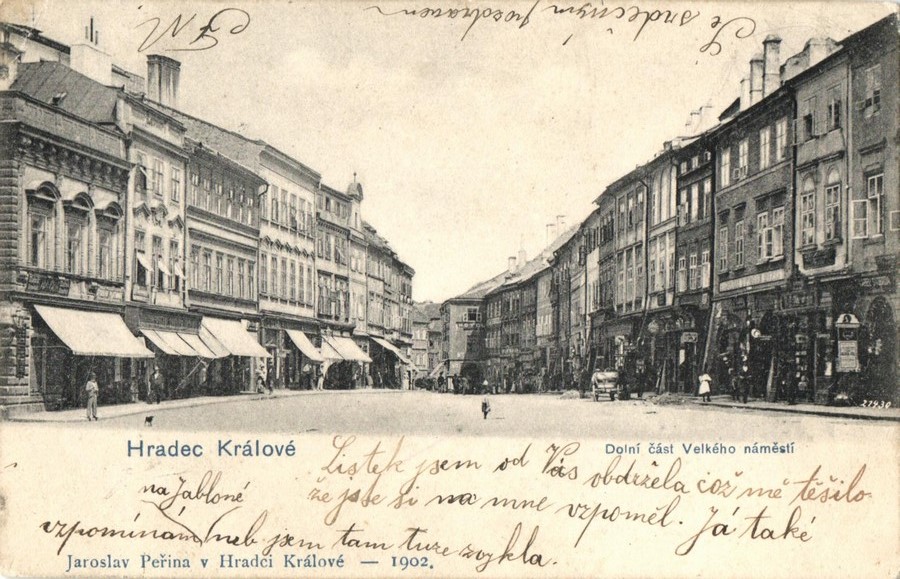 Se srdečným pozdravem
FM
27930
Hradec Králové
Dolní část Velkého náměstí
Listek jsem od Vás obdržela což mě těšilo
že jste si na mne vzpoměl. Já také
na Jabloně
vzpomínám neb jsem tam tuze zvykla.
Jaroslav Peřina v Hradci Králové — 1902.